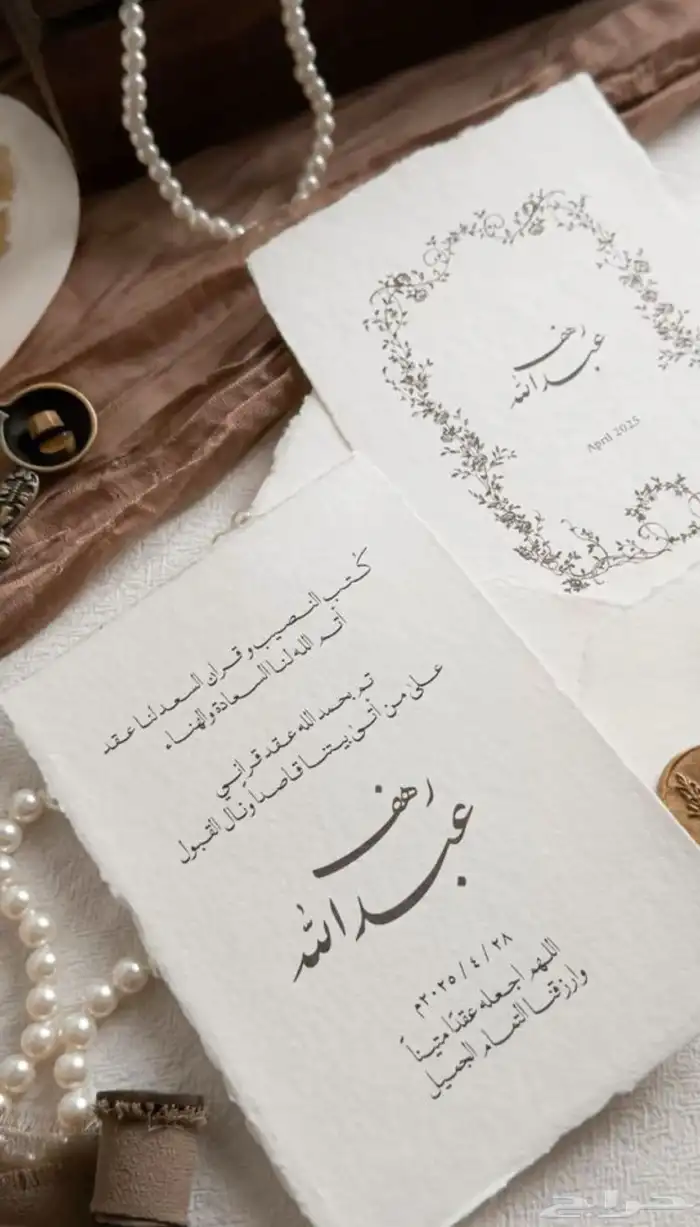 رهف
عبدالله
April 2025
كُتب النصيب وقران السعد لنا عقد
أتم الله لنا السعادة والهناء
تم بحمد الله عقد قراني
على من أتى بيتنا قاصدا ونال القبول
رهف
عبدالله
٢٨ / ٤ / ٢٠٢٥م
اللهم اجعله عقدًا متيناً
وارزقنا التمام الجميل
حراج